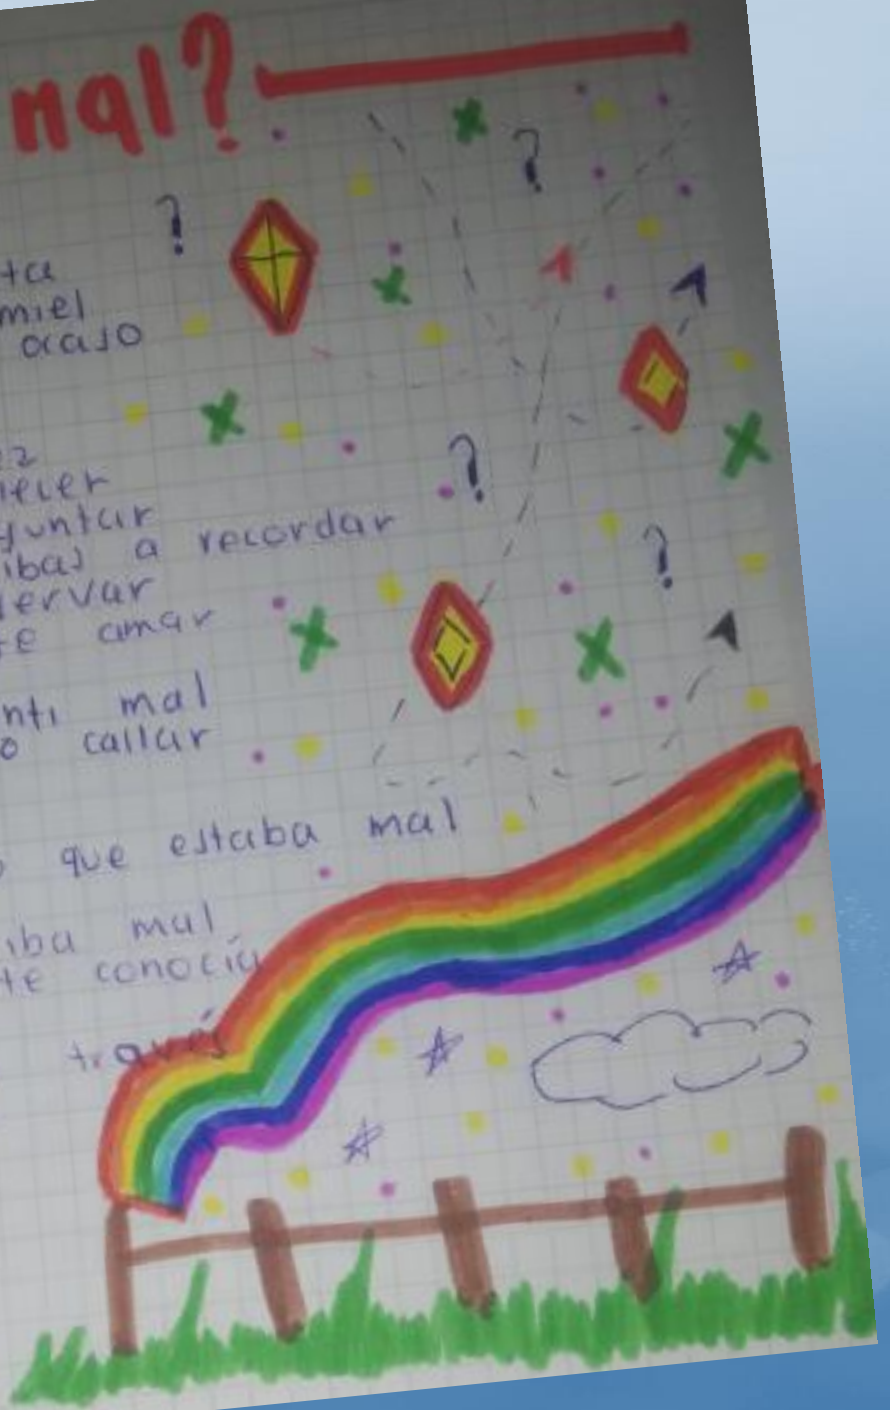 mal?
ta
miel
acaso
ez
recer
guntar
ibas a recordar
servar
te amar
nti mal
o callar
o que estaba mal
iba mal
te conocía
través